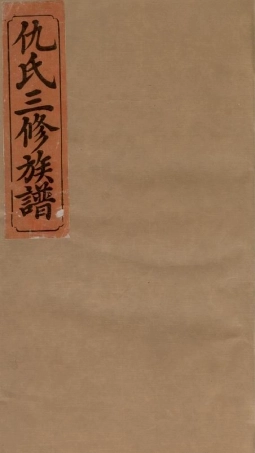 仇氏三修族譜